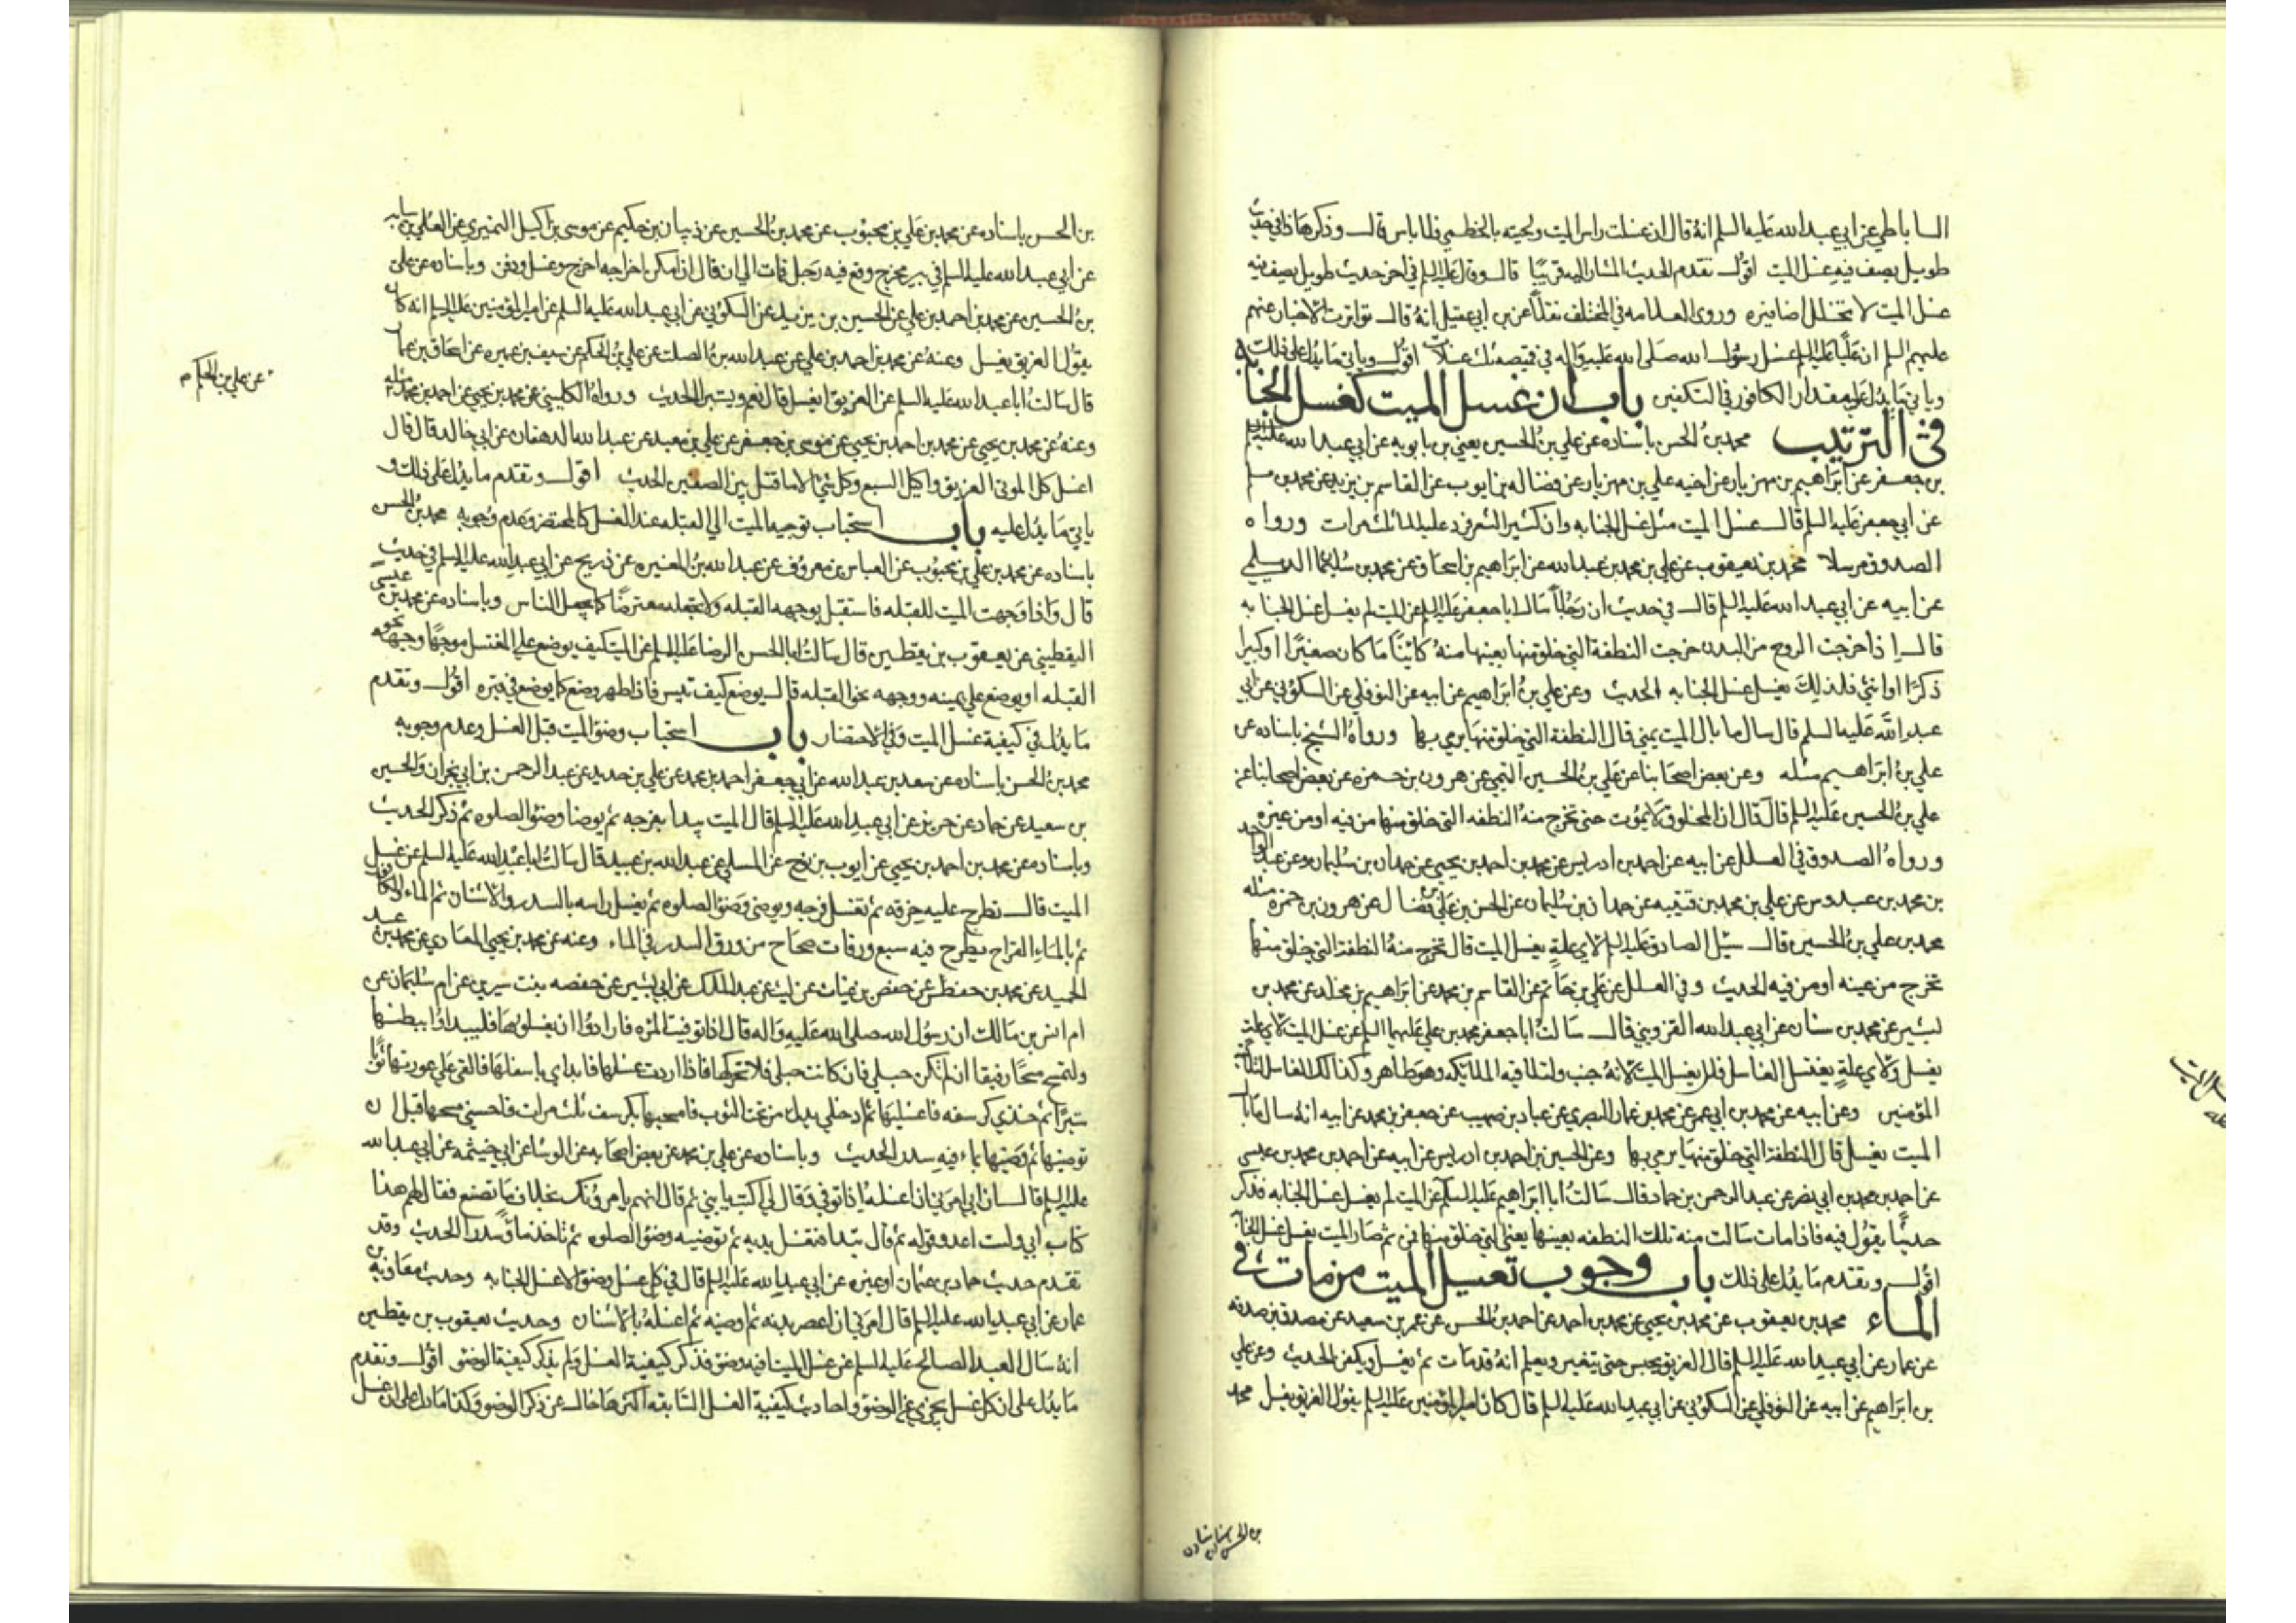 الساباطي عن ابي عبد الله عليه السلم انه قال ان غسلت راس الميت ولحيته بالخطمي فلا باس قال وذكر هذا في حديث
طويل يصف فيه غسل الميت اقول تقدم الحديث المشار اليه قريبا قال وقال عليه السلم في اخر حديث طويل يصف فيه
غسل الميت لا تخلل اضافيره وروى العلامه في المختلف نقلا عن بن ابي عقيل انه قال تواترت الاخبار عنهم
عليهم السلم ان عليا عليه السلم غسل رسول الله صلى الله عليه واله في قميصه ثلث غسلات اقول وياتي ما يدل على ذلك
وياتي ما يدل على مقدار الكافور في التكفين باب ان غسل الميت كغسل الجنابه
في الترتيب محمد بن الحسن باسناده عن علي بن الحسين يعني بن بابويه عن ابي عبد الله عليه السلم
بن جعفر عن ابراهيم بن مهزيار عن اخيه علي بن مهزيار عن فضاله بن ايوب عن القاسم بن يزيد عن محمد بن مسلم
عن ابي جعفر عليه السلم قال غسل الميت مثل غسل الجنابه وان كثير الشعر فرد عليه الماء ثلث مرات ورواه
الصدوق مرسلا محمد بن يعقوب عن علي بن محمد بن عبد الله عن ابراهيم بن اسحاق عن محمد بن سليمان الديلمي
عن ابيه عن ابي عبد الله عليه السلم قال في حديث ان رجلا سال ابا جعفر عليه السلم عن الميت لم يغسل غسل الجنابه
قال اذا خرجت الروح من البدن خرجت النطفة التي خلق منها بعينها منه كائنا ما كان صغيرا او كبيرا
ذكرا او انثى فلذلك يغسل غسل الجنابه الحديث وعن علي بن ابراهيم عن ابيه عن النوفلي عن السكوني عن ابي
عبد الله عليه السلم قال سال ما بال الميت يمني قال النطفة التي خلق منها يرمي بها ورواه الشيخ باسناده عن
علي بن ابراهيم مثله وعن بعض اصحابنا عن علي بن الحسين الميثمي عن هرون بن حمزه عن بعض اصحابنا عن
علي بن الحسين عليه السلم قال قال ان المخلوق لا يموت حتى تخرج منه النطفه التي خلق منها من فيه او من غيره
ورواه الصدوق في العلل عن ابيه عن احمد بن ادريس عن محمد بن احمد بن يحيى عن حمدان بن سليمان وعن عبد الواحد
بن محمد بن عبدوس عن علي بن محمد بن قتيبه عن حمدان بن سليمان عن الحسن بن علي بن فضال عن هرون بن حمزه مثله
محمد بن علي بن الحسين قال سئل الصادق عليه السلم لاي علة يغسل الميت قال تخرج منه النطفة التي خلق منها
تخرج من عينه او من فيه الحديث وفي العلل عن علي بن حاتم عن القاسم بن محمد عن ابراهيم بن مخلد عن محمد بن
بشير عن محمد بن سنان عن ابي عبد الله القزويني قال سالت ابا جعفر محمد بن علي عليهما السلم عن غسل الميت لاي علة
يغسل ولاي علة يغتسل الغاسل قال يغسل الميت لانه جنب ولتلاقيه الملئيكه وهو طاهر وكذلك الغاسل لتلاقيه
المؤمنين وعن ابيه عن محمد بن ابي عمير عن محمد بن عمار البصري عن عباد بن صهيب عن جعفر بن محمد عن ابيه انه سال ما بال
الميت يغسل قال النطفة التي خلق منها يرمي بها وعن الحسين بن احمد بن ادريس عن ابيه عن احمد بن محمد بن عيسى
عن احمد بن محمد بن ابي نصر عن عبد الرحمن بن حماد قال سالت ابا ابراهيم عليه السلم عن الميت لم يغسل غسل الجنابه فذكر
حديثا يقول فيه فاذا مات سالت منه تلك النطفه بعينها يعني التي خلق منها فمن ثم صار الميت يغسل غسل الجنابة
اقول وتقدم ما يدل على ذلك باب وجوب تغسيل الميت من مات في
الماء محمد بن يعقوب عن محمد بن يحيى عن محمد بن احمد عن احمد بن الحسن عن عمر بن سعيد عن مصدق بن صدقه
عن عمار عن ابي عبد الله عليه السلم قال الغريق يحبس حتى يتغير ويعلم انه قد مات ثم يغسل ويكفن الحديث وعن علي
بن ابراهيم عن ابيه عن النوفلي عن السكوني عن ابي عبد الله عليه السلم قال كان امير المؤمنين عليه السلم يقول الغريق يغسل محمد
بن الحسن باسناده
بن الحسن باسناده عن محمد بن علي بن محبوب عن محمد بن الحسين عن ذبيان بن حكيم عن موسى بن اكيل النميري عن العلي بن سيابه
عن ابي عبد الله عليه السلم في بير مخرج وقع فيه رجل فمات الى ان قال ان امكن اخراجه اخرج وغسل ودفن وباسناده عن علي
بن الحسين عن محمد بن احمد بن علي عن الحسين بن يزيد عن السكوني عن ابي عبد الله عليه السلم عن امير المؤمنين عليه السلم انه كان
يقول الغريق يغسل وعنه عن محمد بن احمد بن علي عن عبد الله بن الصلت عن علي بن الحكم عن سيف بن عميره عن اسحاق بن عمار
عن علي بن الحكم م
قال سالت ابا عبد الله عليه السلم عن الغريق ايغسل قال نعم ويستبرا الحديث ورواه الكليني عن محمد بن يحيى عن احمد بن محمد مثله
وعنه عن محمد بن يحيى عن محمد بن احمد بن يحيى عن موسى بن جعفر عن علي بن معبد عن عبد الله الدهقان عن ابي خالد قال قال
اغسل كل الموتى الغريق واكيل السبع وكل شيء الا ما قتل بين الصفين الحديث اقول وتقدم ما يدل على ذلك و
ياتي ما يدل عليه باب استحباب توجيه الميت الى القبله عند الغسل كالمحتضر وعدم وجوبه محمد بن الحسن
باسناده عن محمد بن علي بن محبوب عن العباس عن معروف عن عبد الله بن المغيره عن ذريح عن ابي عبد الله عليه السلم في حديث
قال واذا وجهت الميت للقبله فاستقبل بوجهه القبله ولا تجعله معترضا كما يجعل الناس وباسناده عن محمد بن عيسى
اليقطيني عن يعقوب بن يقطين قال سالت ابا الحسن الرضا عليه السلم عن الميت كيف يوضع على المغتسل موجها وجهه نحو
القبله او يوضع على يمينه ووجهه نحو القبله قال يوضع كيف تيسر فاذا طهر وضع كما يوضع في قبره اقول وتقدم
ما يدل في كيفية غسل الميت وفي الاحتضار باب استحباب وضوء الميت قبل الغسل وعدم وجوبه
محمد بن الحسن باسناده عن سعد بن عبد الله عن ابي جعفر احمد بن محمد عن علي بن حديد عن عبد الرحمن بن ابي نجران والحسين
بن سعيد عن حماد عن حريز عن ابي عبد الله عليه السلم قال الميت يبدا بفرجه ثم يوضا وضوء الصلوه ثم ذكر الحديث
وباسناده عن محمد بن احمد بن يحيى عن ايوب بن نوح عن المسلي عن عبد الله بن عبيد قال سالت ابا عبد الله عليه السلم عن غسل
الميت قال تطرح عليه خرقه ثم تغسل فرجه ويوضى وضوء الصلوه ثم يغسل راسه بالسدر والاشنان ثم الماء والكافور
ثم بالماء القراح يطرح فيه سبع ورقات صحاح من ورق السدر في الماء وعنه عن محمد بن يحيى المعاذي عن محمد بن عبد
الحميد عن محمد بن حفص عن حفص بن غياث عن ليث عن عبد الملك عن ابي بشير عن حفصه بنت سيرين عن ام سليمان عن
ام انس بن مالك ان رسول الله صلى الله عليه واله قال اذا توفيت المرءه فارادوا ان يغسلوها فليبداوا ببطنها
ولتمسح مسحا رفيقا ان لم تكن حبلى فان كانت حبلى فلا تحركها فاذا اردت غسلها فابداي باسفلها فالقي على عورتها ثوبا
ستيرا ثم خذي كرسفه فاغسليها ثم ادخلي يدك من تحت الثوب فامسحيها بكرسف ثلث مرات فاحسني مسحها قبل ان
توضيها ثم وضيها بماء فيه سدر الحديث وباسناده عن علي بن محمد عن بعض اصحابه عن الوشا عن ابي خيثمه عن ابي عبد الله
عليه السلم قال ان ابي امرني ان اغسله اذا توفي وقال لي اكتب يا بني ثم قال انهم يامرونك بخلاف ما تصنع فقل لهم هذا
كتاب ابي ولست اعدو قوله ثم قال تبدا فتغسل يديه ثم توضيه وضوء الصلوه ثم تاخذ ماء وسدرا الحديث وقد
تقدم حديث حماد بن عثمان او غيره عن ابي عبد الله عليه السلم قال في كل غسل وضوء الا غسل الجنابه وحديث معاوية بن
عمار عن ابي عبد الله عليه السلم قال امرني ان اعصر بطنه ثم اوضيه ثم اغسله بالاشنان وحديث يعقوب بن يقطين
انه سال العبد الصالح عليه السلم عن غسل الميت افيه وضوء فذكر كيفية الغسل ولم يذكر كيفية الوضوء اقول وتقدم
ما يدل على ان كل غسل يجزي عن الوضوء واحاديث كيفية الغسل السابقه اكثرها خال عن ذكر الوضوء وكذا ما دل على ان غسل